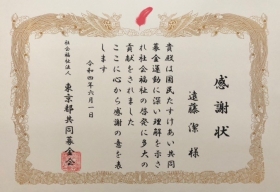 感謝状
遠藤潔様
貴殿は国民たすけあい共同
募金運動に深い理解を示さ
れ社会福祉の啓発に多大の
貢献をされました
ここに心から感謝の意を表
します
令和四年六月一日
社会福祉法人
東京都共同募金会